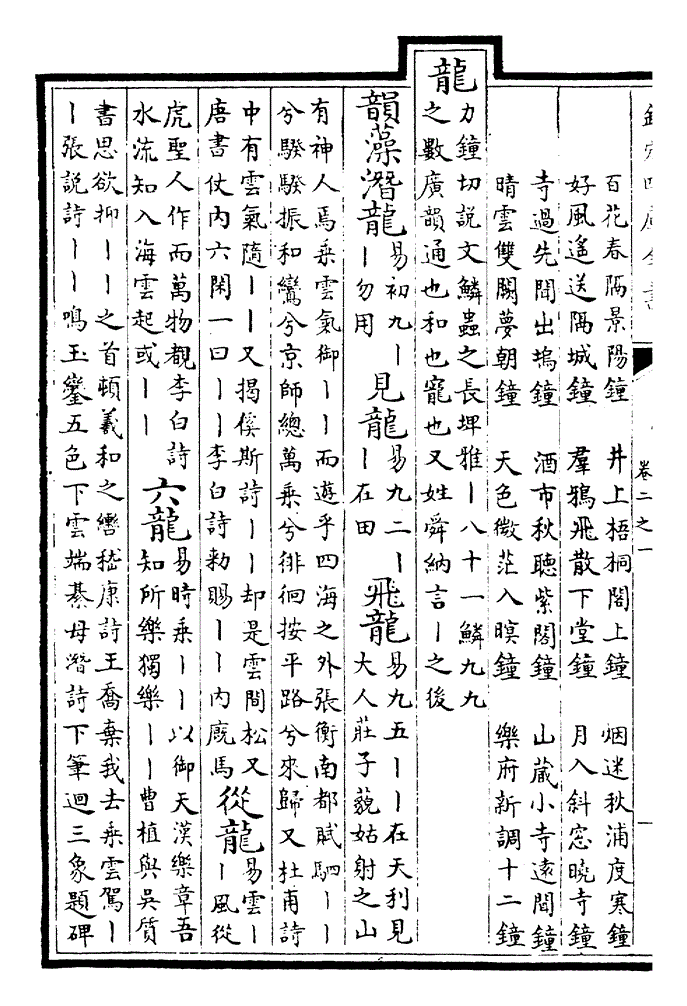 欽定四庫全書 卷二之一
百花春隔景陽鐘 井上梧桐閣上鐘 烟迷秋浦度寒鐘
好風遙送隔城鐘 羣鴉飛散下堂鐘 月入斜窓曉寺鐘
寺過先聞出塢鐘 酒市秋聽紫閣鐘 山藏小寺遠聞鐘
晴雲雙闕夢朝鐘 天色微茫入暝鐘 樂府新調十二鐘
龍
力鐘切說文鱗蟲之長埤雅丨八十一鱗九九
之數廣韻通也和也寵也又姓舜納言丨之後
韻藻潛龍
易初九丨
丨勿用
見龍
易九二丨
丨在田
飛龍
易九五丨丨在天利見
大人莊子藐姑射之山
有神人焉乘雲氣御丨丨而遊乎四海之外張衡南都賦駟丨丨
兮騤騤振和鸞兮京師總萬乘兮徘徊按平路兮來歸又杜甫詩
中有雲氣隨丨丨又揭傒斯詩丨丨却是雲間松又
唐書仗內六閑一曰丨丨李白詩勅賜丨丨內廐馬
從龍
易雲丨
丨風從
虎聖人作而萬物覩李白詩
水流知入海雲起或丨丨
六龍
易時乘丨丨以御天漢樂章吾
知所樂獨樂丨丨曹植與吳質
書思欲抑丨丨之首頓羲和之轡嵇康詩王喬棄我去乘雲駕丨
丨張說詩丨丨鳴玉鑾五色下雲端綦母潛詩下筆迴三象題碑